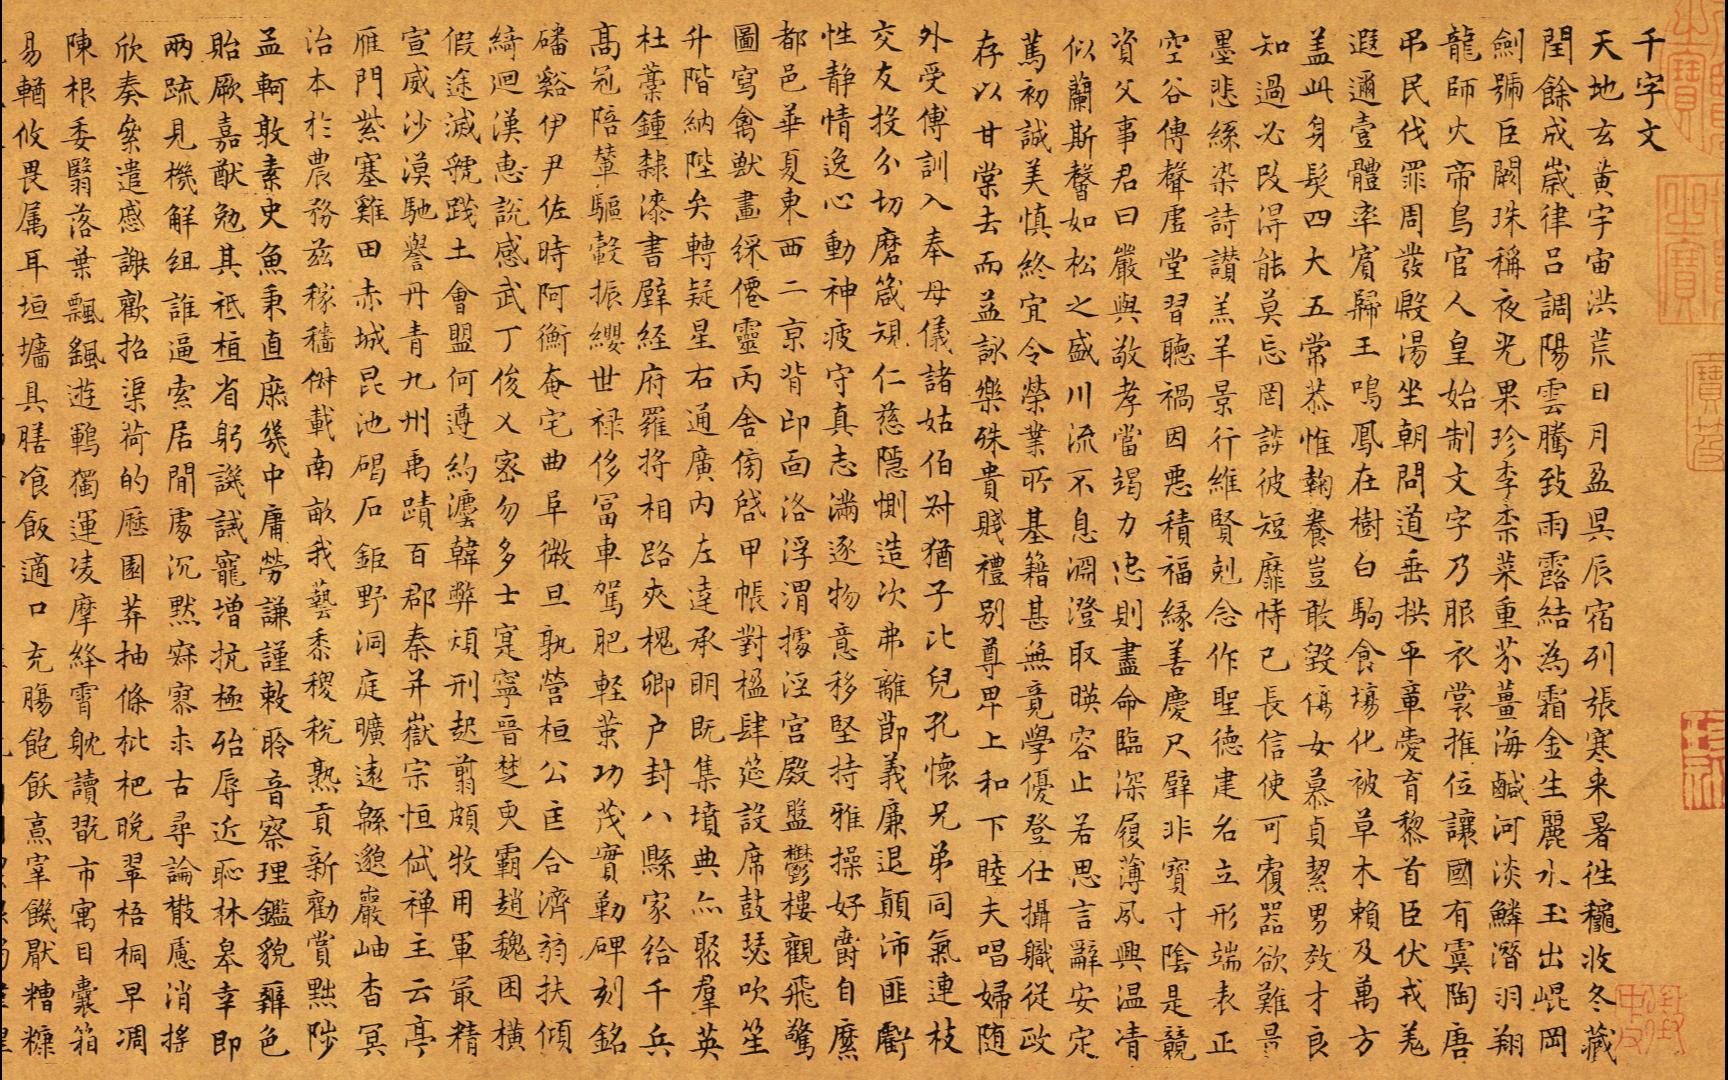 千字文
天地玄黃宇宙洪荒日月盈昃辰宿列張寒来暑往穐收冬藏
閏餘成歲律呂調陽雲騰致雨露結為霜金生麗水玉出崐岡
劍號巨闕珠稱夜光果珍李柰菜重芥薑海鹹河淡鱗潛羽翔
龍師火帝鳥官人皇始制文字乃服衣裳推位讓國有虞陶唐
弔民伐罪周發殷湯坐朝問道垂拱平章愛育黎首臣伏戎羌
遐邇壹體率賓歸王鳴鳳在樹白駒食場化被草木賴及萬方
盖此身髮四大五常恭惟鞠養豈敢毀傷女慕貞絜男效才良
知過必改得能莫忘罔談彼短靡恃己長信使可覆器欲難量
墨悲絲染詩讚羔羊景行維賢剋念作聖德建名立形端表正
空谷傳聲虛堂習聽禍因惡積福緣善慶尺璧非寶寸陰是競
資父事君曰嚴與敬孝當竭力忠則盡命臨深履薄夙興温凊
似蘭斯馨如松之盛川流不息淵澄取暎容止若思言辭安定
篤初誠美慎終宜令榮業所基籍甚無竟學優登仕攝職從政
存以甘棠去而益詠樂殊貴賤禮别尊卑上和下睦夫唱婦随
外受傅訓入奉母儀諸姑伯叔猶子比兒孔懷兄弟同氣連枝
交友投分切磨箴規仁慈隱惻造次弗離節義廉退顛沛匪虧
性静情逸心動神疲守真志滿逐物意移堅持雅操好爵自縻
都邑華夏東西二京背邙面洛浮渭據涇宮殿盤鬱樓觀飛驚
圖寫禽獸畫綵僊靈丙舍傍啓甲帳對楹肆筵設席鼓瑟吹笙
升階納陛弁轉疑星右通廣内左達承明既集墳典亦聚羣英
杜藁鍾隸漆書壁經府羅將相路夾槐卿户封八縣家給千兵
高冠陪輦驅轂振纓世禄侈富車駕肥輕策功茂實勒碑刻銘
磻谿伊尹佐時阿衡奄宅曲阜微旦孰營桓公匡合濟弱扶傾
綺迴漢惠說感武丁俊乂密勿多士寔寧晉楚更霸趙魏困橫
假途滅虢踐土會盟何遵約灋韓弊煩刑起翦頗牧用軍最精
宣威沙漠馳譽丹青九州禹蹟百郡秦并嶽宗恒岱禪主云亭
雁門紫塞雞田赤城昆池碣石鉅野洞庭曠遠緜邈巖岫杳冥
治本於農務兹稼穡俶載南畝我藝黍稷稅熟貢新勸賞黜陟
孟軻敦素史魚秉直庶幾中庸勞謙謹敕聆音察理鑑貌辨色
貽厥嘉猷勉其祗植省躬譏誡寵增抗極殆辱近恥林皋幸即
兩疏見機解組誰逼索居閒處沉默寂寥求古尋論散慮消搖
欣奏累遣慼謝歡招渠荷的歷園莽抽條枇杷晚翠梧桐早凋
陳根委翳落葉飄飖遊鵾獨運凌摩絳霄耽讀翫市寓目囊箱
易輶攸畏属耳垣墻具膳飡飯適口充腸飽飫烹宰饑厭糟糠